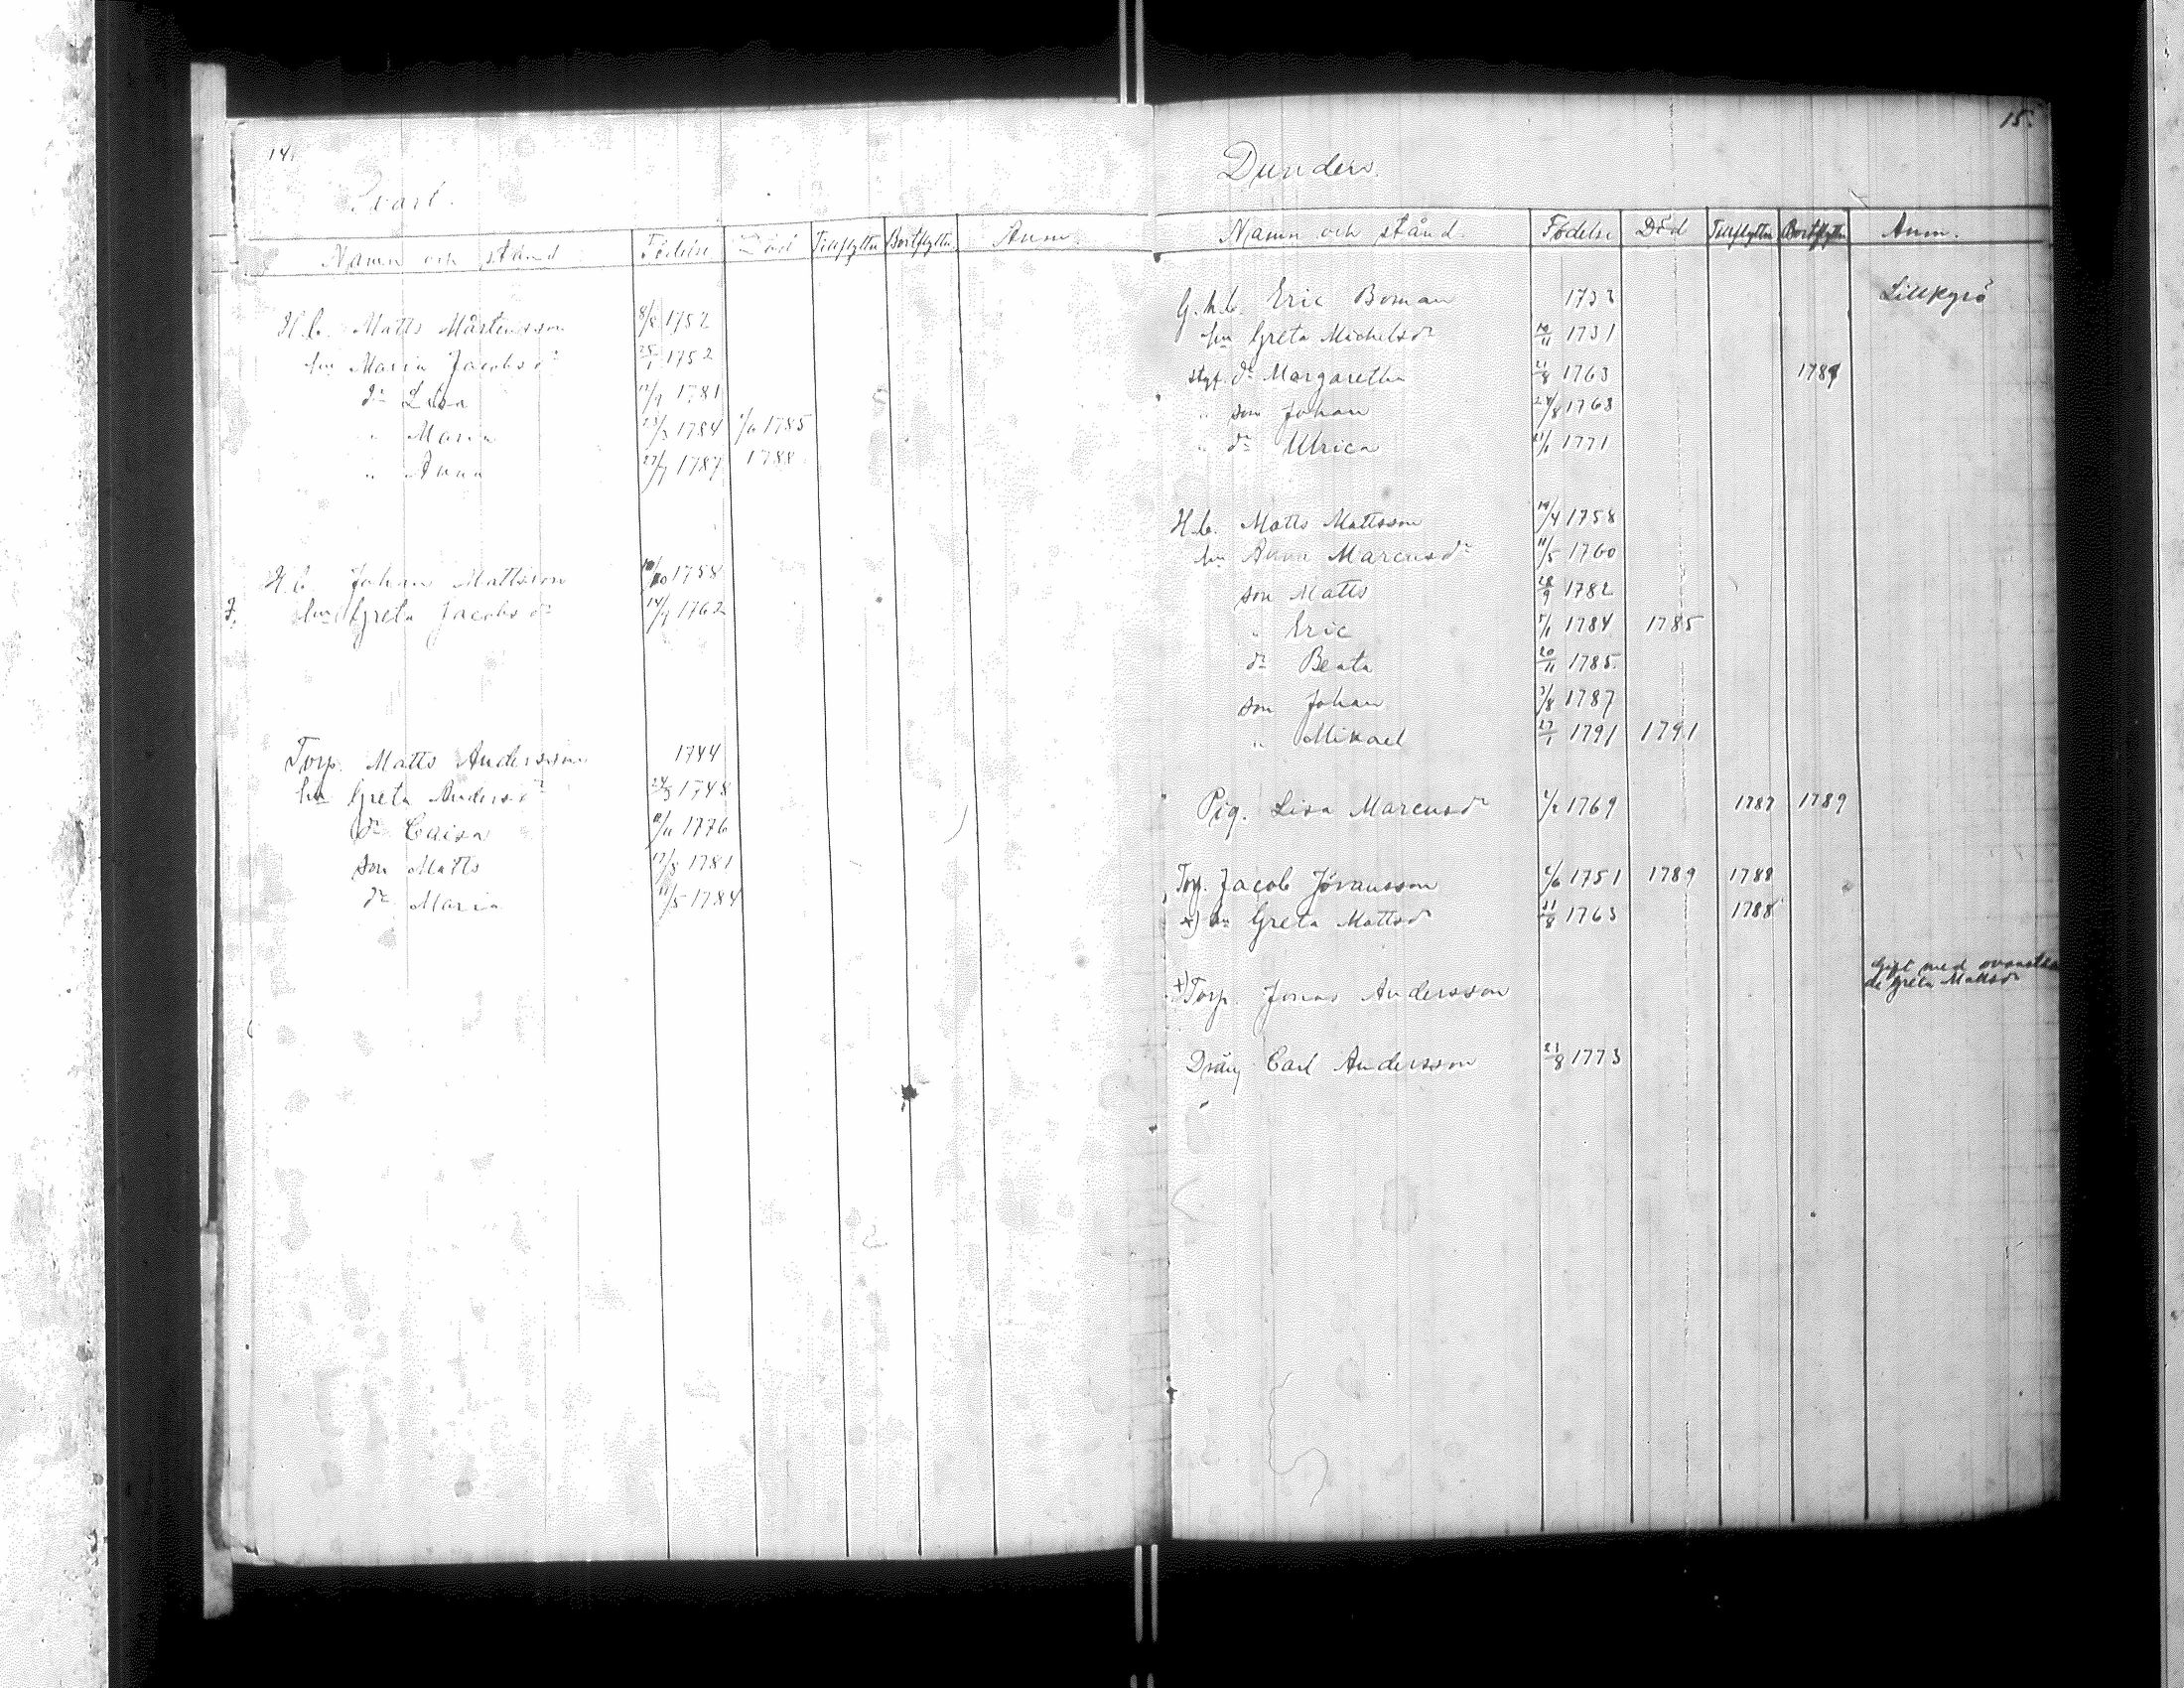 14.
Svarf.
Namn och stånd Födelse Död Tillflyttn Bortflyttn. Anm.
H.b. Matts Mårtensson 8/8 1752
hu Maria Jacobsdr 25/1 1752
dr Lisa 12/9 1781
" Maria 23/3 1784 1785
" Anna 27/7 1787 1788
H.b. Johan Mattsson 10/10 1758
hu Greta Jacobsdr 14/9 1762
Torp. Matts Andersson 1744
hu Greta Andersdr 24/3 1748
dr Caisa 1776
son Matts 17/8 1781
dr Maria 11/5 1784
15.
Dunders.
Namn och stånd. Födelse Död Tillflyttn Bortflyttn Anm.
G.h.b. Eric Boman 1733 Lillkyrö
hu Greta Michelsdr 10/11 1731
styf. dr Margaretha 21/8 1763 1789
" son Johan 24/8 1768
" dr Ulrica 21/1 1771
H.b. Matts Mattsson 19/4 1758
hu Anna Marcusdr 11/5 1760
son Matts 28/9 1782
" Eric 5/1 1784 1785
dr Beata 20/11 1785
son Johan 3/8 1787
" Mikael 27/1 1791 1791
Pig. Lisa Marcusdr 1/2 1769 1787 1789
Torp. Jacob Jöransson 6/6 1751 1789 1788
x) hu Greta Mattsdr 21/8 1763 1788
x) Torp. Jonas Andersson Gift med ovanståen
de Greta Mattsdr
Dräng Carl Andersson 21/8 1773